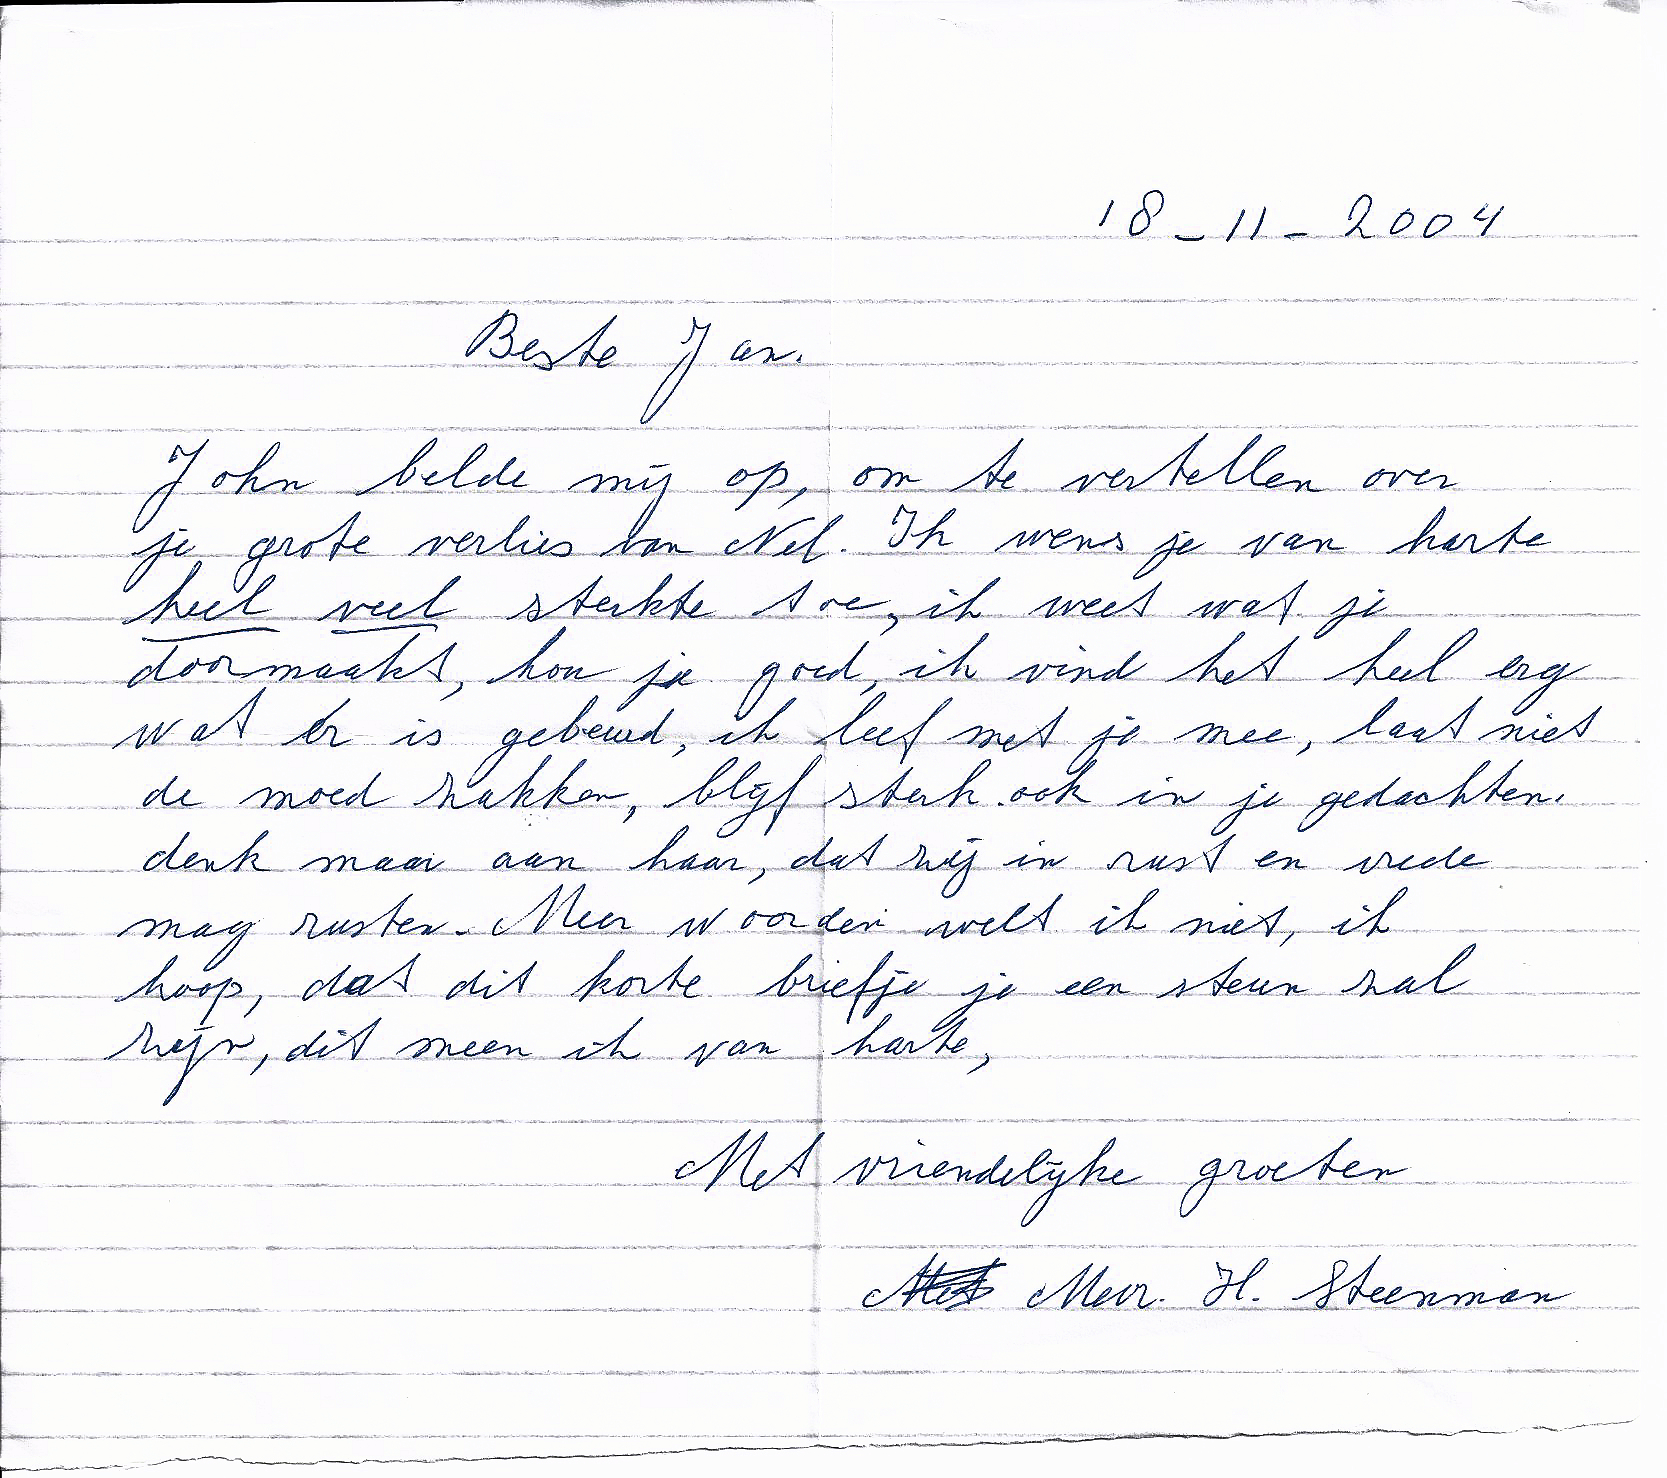 18-11-2004
Beste Jan.
John belde mij op, om te vertellen over
je grote verlies van Nel. Ik wens je van harte
heel veel sterkte toe, ik weet wat je
doormaakt, hou je goed, ik vind het heel erg
wat er is gebeurd, ik leef met je mee, laat niet
de moed zakken, blijf sterk ook in je gedachten.
denk maar aan haar, dat zij in rust en vrede
mag rusten. Meer woorden welt ik niet, ik
hoop, dat dit korte briefje je een steun zal
zijn, dit meen ik van harte,
Met vriendelijke groeten
Mevr. H. Steenman